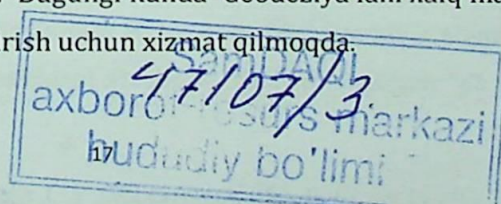 rish uchun xizmat qilmoqda.
SamDAQI
47107/3
axborot-resurs markazi
hududiy bo'limi
17